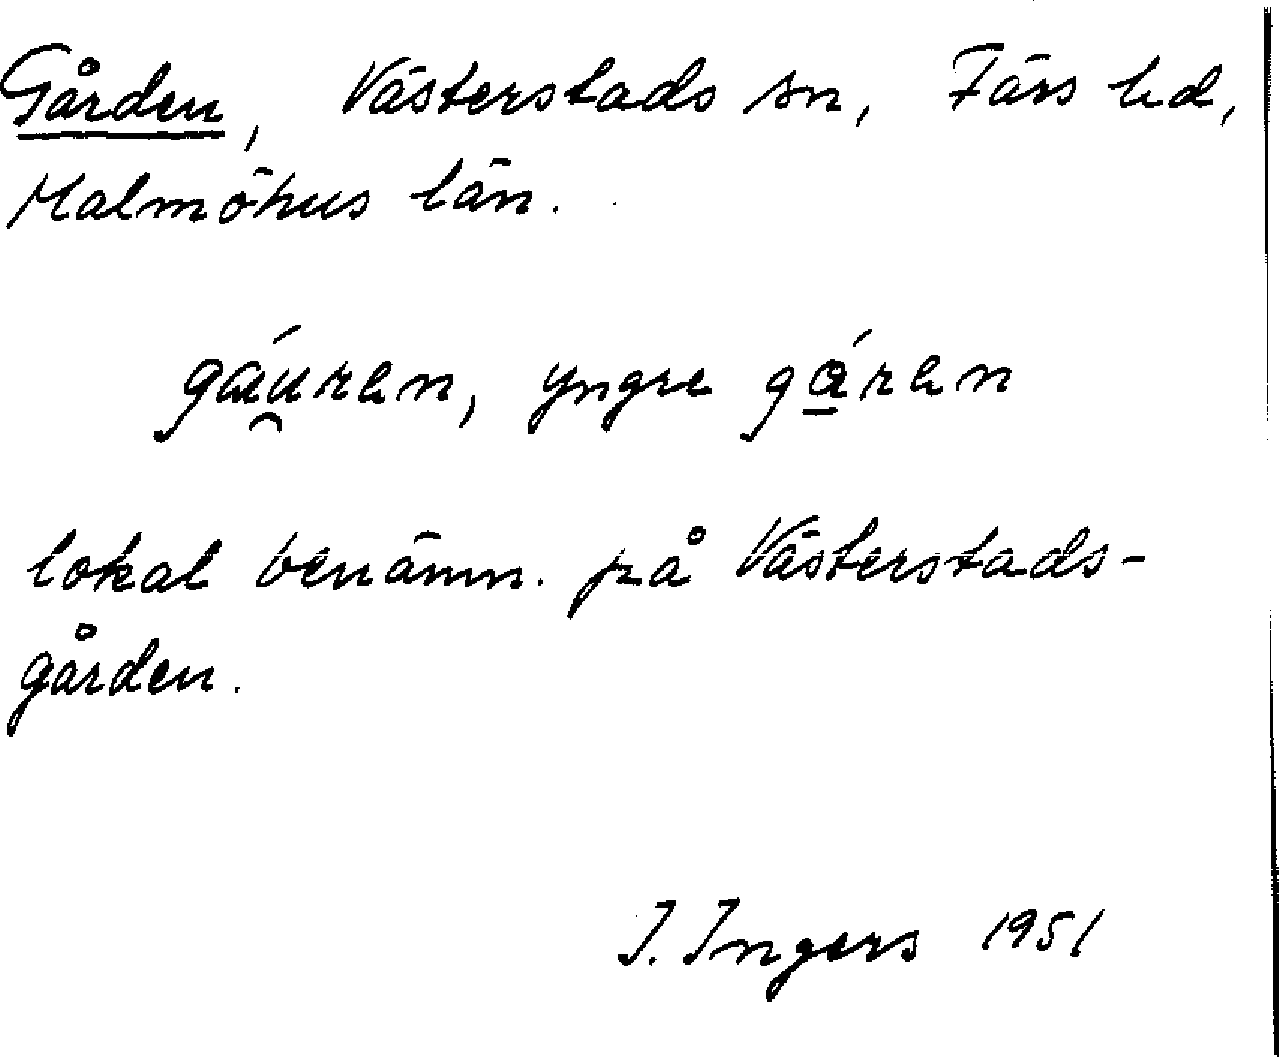 Gården, Västerstads sn, Färs hd,
Malmöhus län.
gáu̯ren, yngre gá̱ren
lokal benämn. på Västerstads-
gården.
I. Ingers 1951